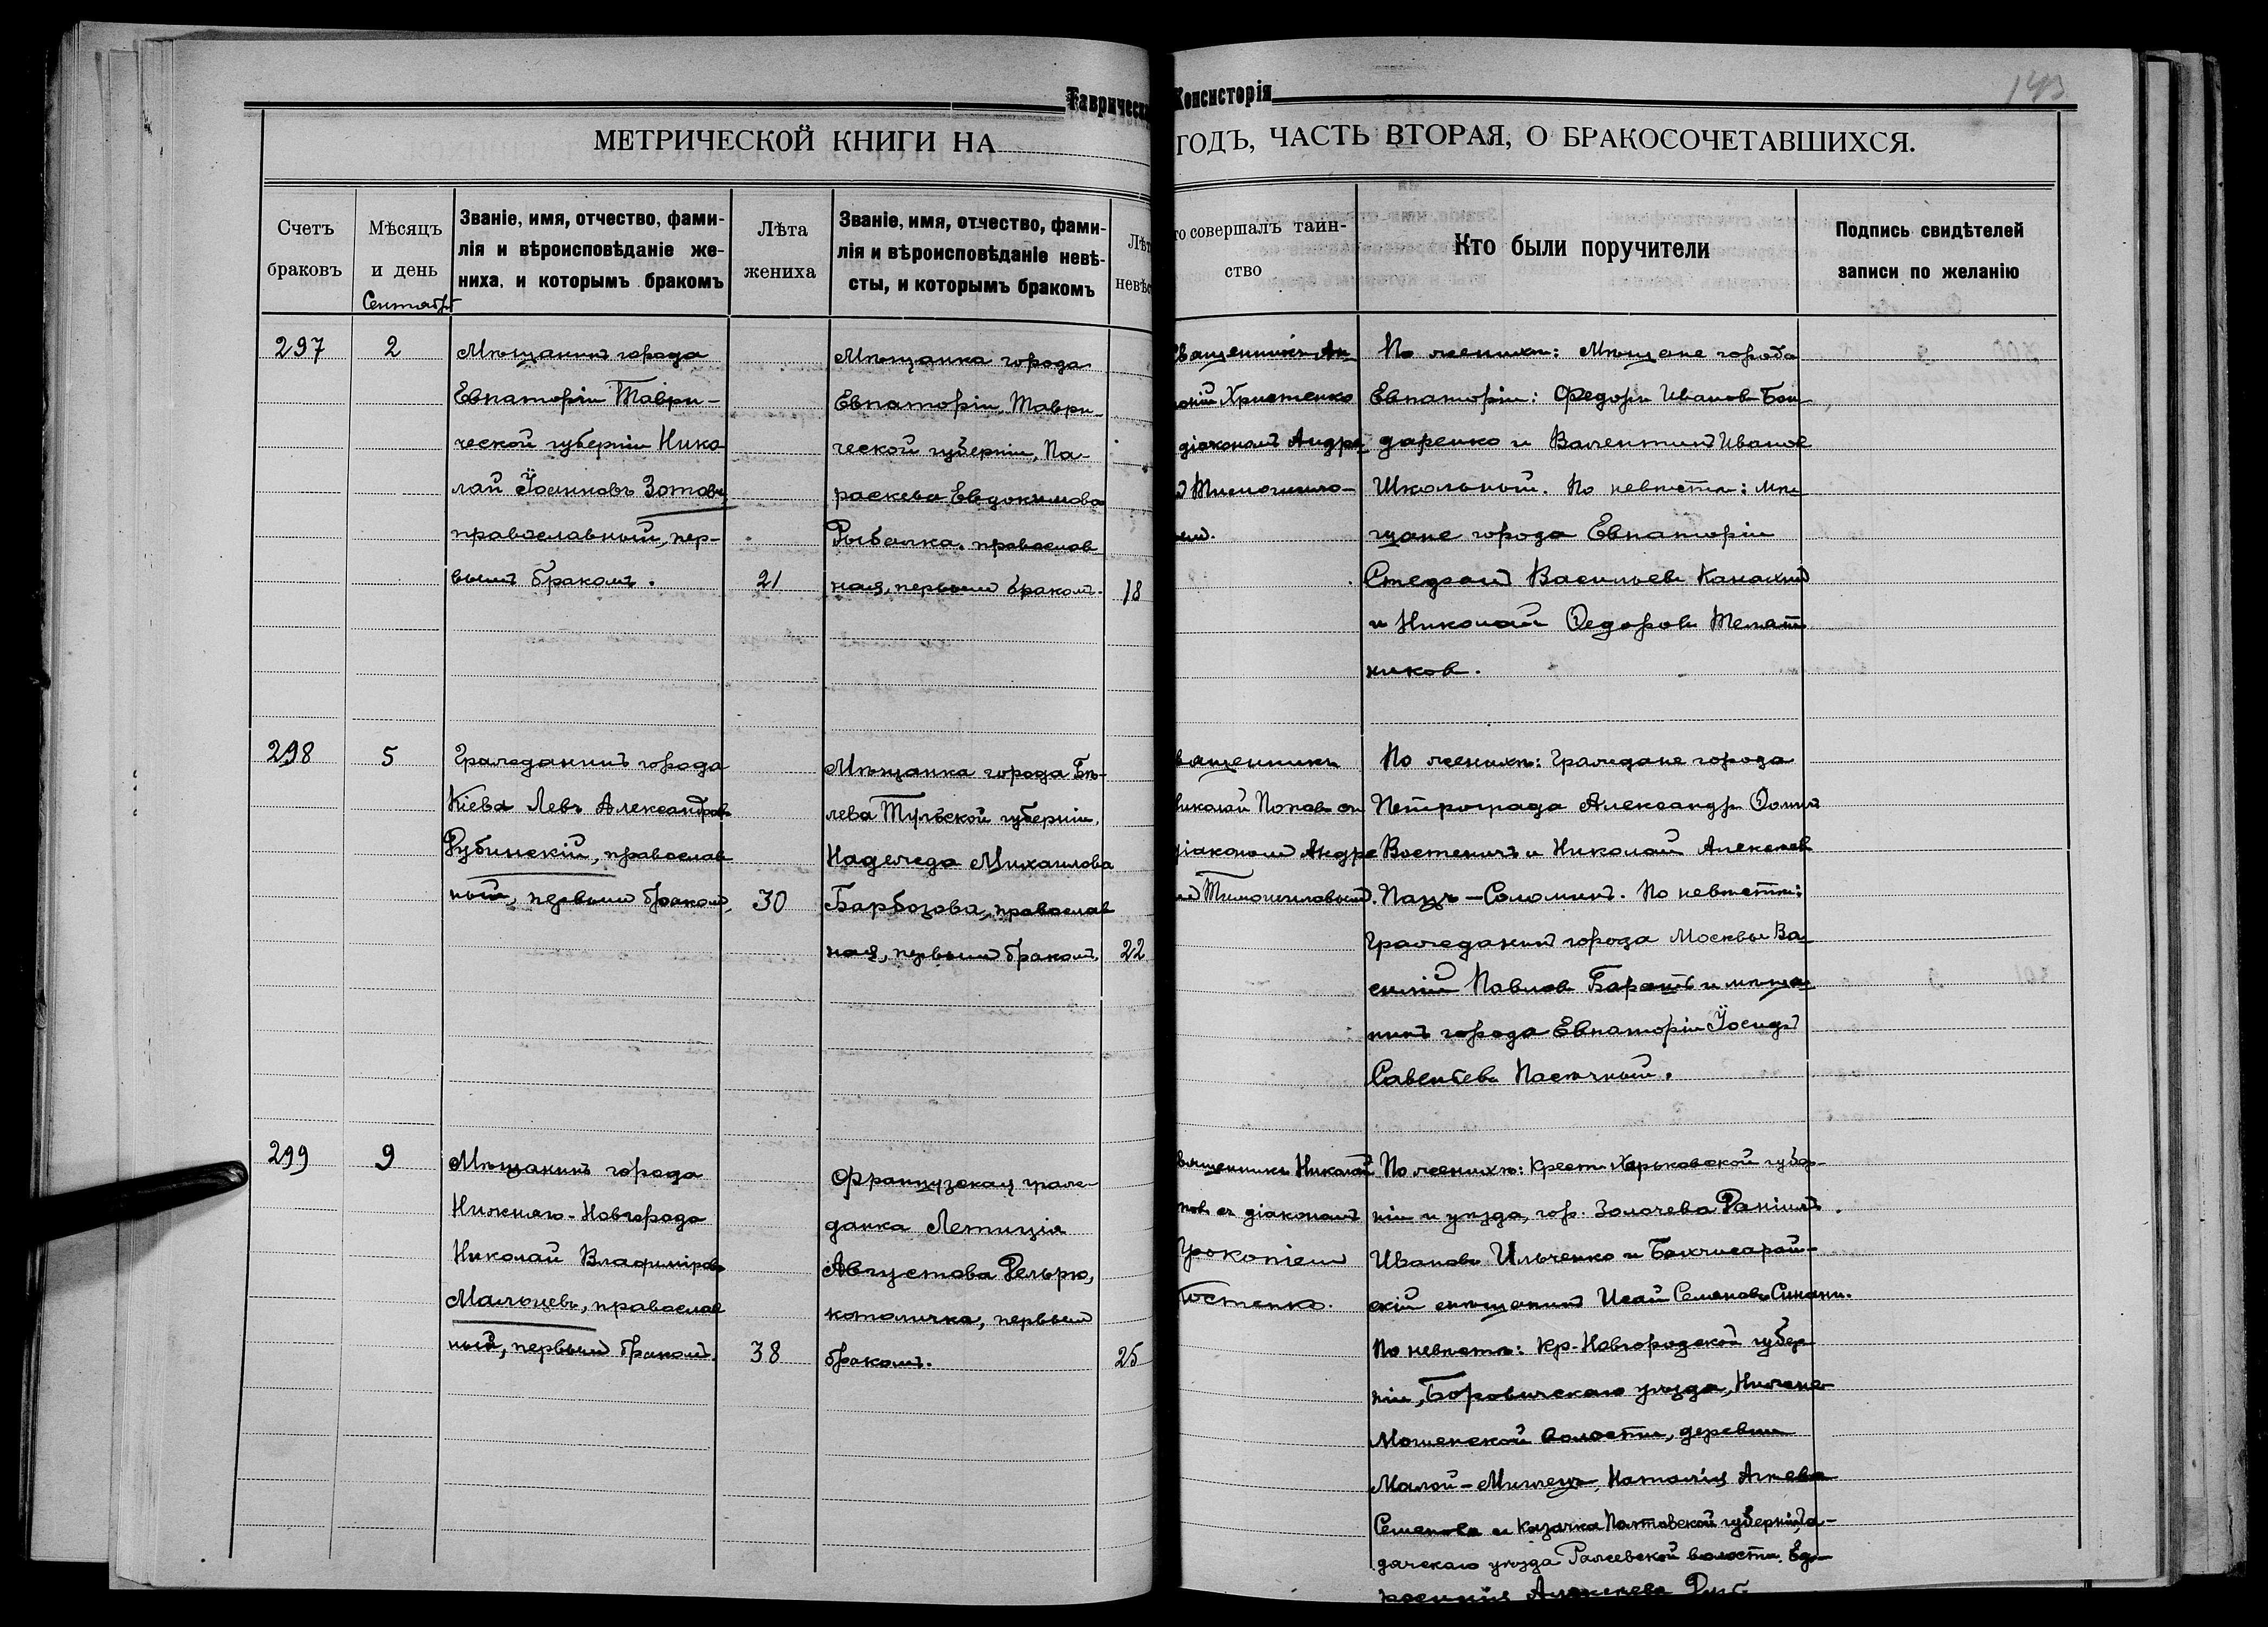 Таврическ Консисторія
143
МЕТРИЧЕСКОЙ КНИГИ НА ГОДЪ, ЧАСТЬ ВТОРАЯ, О БРАКОСОЧЕТАВШИХСЯ.
Счетъ
браковъ
Мѣсяцъ
и день
Сентябрь
Званіе, имя, отчество, фами-
лія и вѣроисповѣданіе же-
ниха, и которымъ бракомъ
Лѣта
жениха
Званіе, имя, отчество, фами-
лія и вѣроисповѣданіе невѣ-
сты, и которымъ бракомъ
Лѣт
невѣс
то совершалъ таин-
ство
Кто были поручители
Подпись свидѣтелей
записи по желанію
297
2
Мѣщанинъ города
Евпаторіи Таври-
ческой губерніи Нико
лай Іосифовъ Зотовъ,
православный, пер-
вымъ бракомъ.
21
Мѣщанка города
Евпаторіи, Таври-
ческой губерніи, Па-
раскева Евдокимова
Рыбалка, православ
ная, первымъ бракомъ.
18
Священникъ Ан-
оній Христенко
діакономъ Андре
По женихѣ: Мѣщане города
Евпаторіи: Федоръ Ивановъ Бон
даренко и Валентинъ Иванов
Школьный. По невѣстѣ: мѣ
щане города Евпаторіи
Стефанъ Васильевъ
и Николай Ѳедоровъ Телят
ников.
298
5
Гражданинъ города
Кіева Левъ Александровъ
Рубинскій, православ
ный, первымъ бракомъ,
30
Мѣщанка города Бѣ-
лева Тульской губерніи,
Надежда Михаилова
Барбозова, православ
ная, первымъ бракомъ,
22
вященникъ
иколай Попов съ
діакономъ Андре
По женихѣ: Граждане города
Петрограда Александръ Ѳомин
и Николай Алексѣев
Панъ-Соломинъ. По невѣстѣ:
Гражданинъ города Москвы Ва-
силій Павлов и мѣща
нинъ города Евпаторіи Іосифъ
Савельевъ Пасѣчный.
299
9
Мѣщанинъ города
Нижняго-Новгорода
Николай Владиміровъ
Мальцевъ, православ
ный, первымъ бракомъ.
38
Французская граж-
данка Летиція
Августова Дельрю,
католичка, первым
бракомъ.
25
вященникъ Николай
пов съ діакономъ
Прокопіем
Костенко.
По женихѣ: Крест. Харьковской губер-
ніи и уѣзда, гор. Золочева Даніилъ
Ивановъ Ильченко и Бахчисарай-
скій мѣщанинъ Исай Семеновъ Синани.
По невѣстѣ: Кр. Новгородской губер
ніи, Боровичскаго уѣзда, Нижне-
Мошенской волости, деревни
Малой- Наталія
Семенова и Казачка Полтавской губерніи, Га-
дячскаго уѣзда Рашевской волости, Ев-
Алексѣева